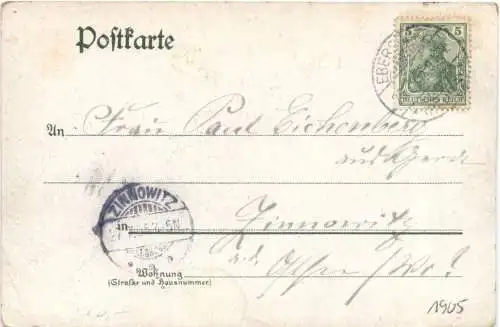 Postkarte
5 5
DEUTSCHES REICH
EBERS
An Frau Paul Eichenberg
und Gerda
ZINNOWITZ
in Zinnowitz
a. d. Ostsee
Wohnung
(Straße und Hausnummer)
1905